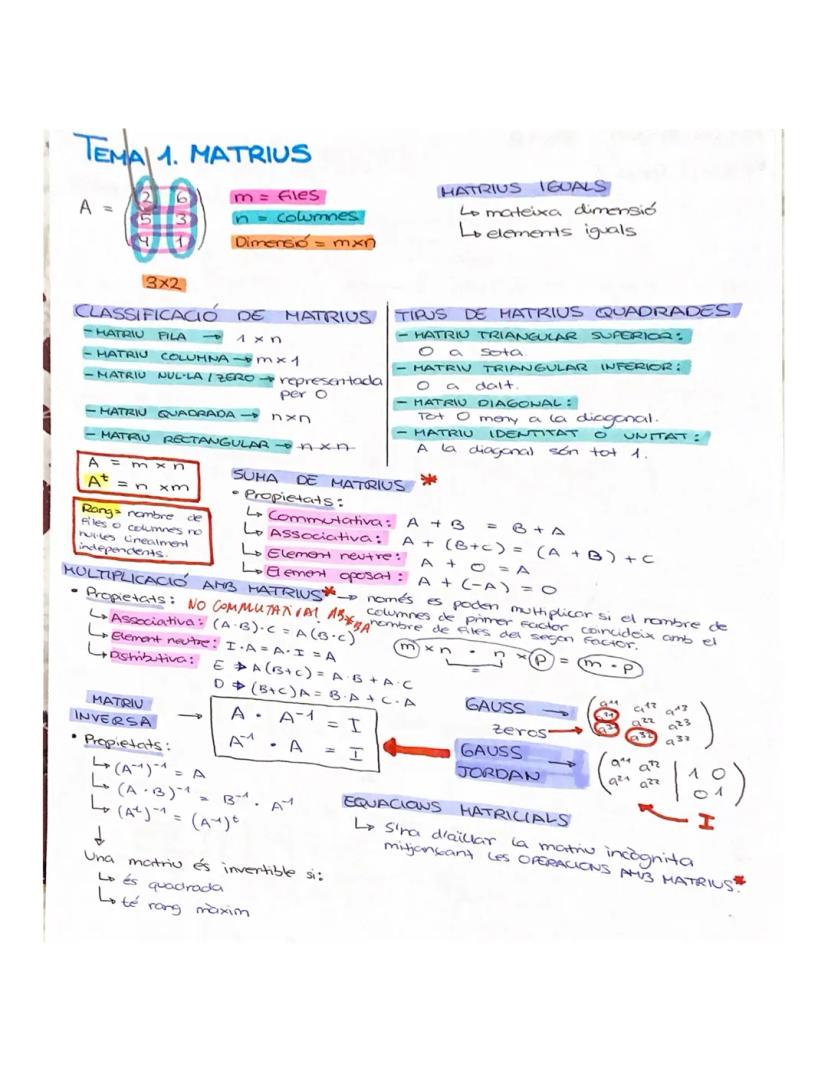 TEMA 1. MATRIUS
A = ( 2 6
5 3
4 1 )
3x2
m = files
n = columnes
Dimensió = mxn
MATRIUS IGUALS
↳ mateixa dimensió
↳ elements iguals
CLASSIFICACIÓ DE MATRIUS
- MATRIU FILA → 1 x n
- MATRIU COLUMNA → m x 1
- MATRIU NUL·LA / ZERO → representada
per 0
- MATRIU QUADRADA → n x n
- MATRIU RECTANGULAR → n x n
TIPUS DE MATRIUS QUADRADES
- MATRIU TRIANGULAR SUPERIOR:
0 a sota
- MATRIU TRIANGULAR INFERIOR:
0 a dalt.
- MATRIU DIAGONAL:
Tot 0 meny a la diagonal.
- MATRIU IDENTITAT O UNITAT:
A la diagonal són tot 1.
A = m x n
Aᵗ = n x m
Rang= nombre de
files o columnes no
nul·les linealment
independents.
SUMA DE MATRIUS *
• Propietats:
↳ Commutativa: A + B = B + A
↳ Associativa: A + (B+C) = (A + B) + C
↳ Element neutre: A + 0 = A
↳ Element oposat: A + (-A) = 0
MULTIPLICACIÓ AMB MATRIUS * → només es poden multiplicar si el nombre de
columnes de primer factor coincideix amb el
nombre de files del segon factor.
• Propietats: NO COMMUTATIVA! AB≠BA
↳ Associativa: (A·B)·C = A(B·C)
↳ Element neutre: I·A = A·I = A
↳ Distributiva:
E → A(B+C) = A·B + A·C
D → (B+C)A = B·A + C·A
m x n · n x p = m · p
MATRIU
INVERSA →
A · A⁻¹ = I
A⁻¹ · A = I
• Propietats:
↳ (A⁻¹)⁻¹ = A
↳ (A · B)⁻¹ = B⁻¹ · A⁻¹
↳ (Aᵗ)⁻¹ = (A⁻¹)ᵗ
↓
Una matriu és invertible si:
↳ és quadrada
↳ té rang màxim
GAUSS → ( a¹¹ a¹² a¹³
a²¹ a²² a²³
a³¹ a³² a³³ )
zeros →
GAUSS
JORDAN → ( a¹¹ a¹² | 1 0
a²¹ a²² | 0 1 )
I
EQUACIONS MATRICIALS
↳ S'ha d'aïllar la matriu incògnita
mitjançant les OPERACIONS AMB MATRIUS.*